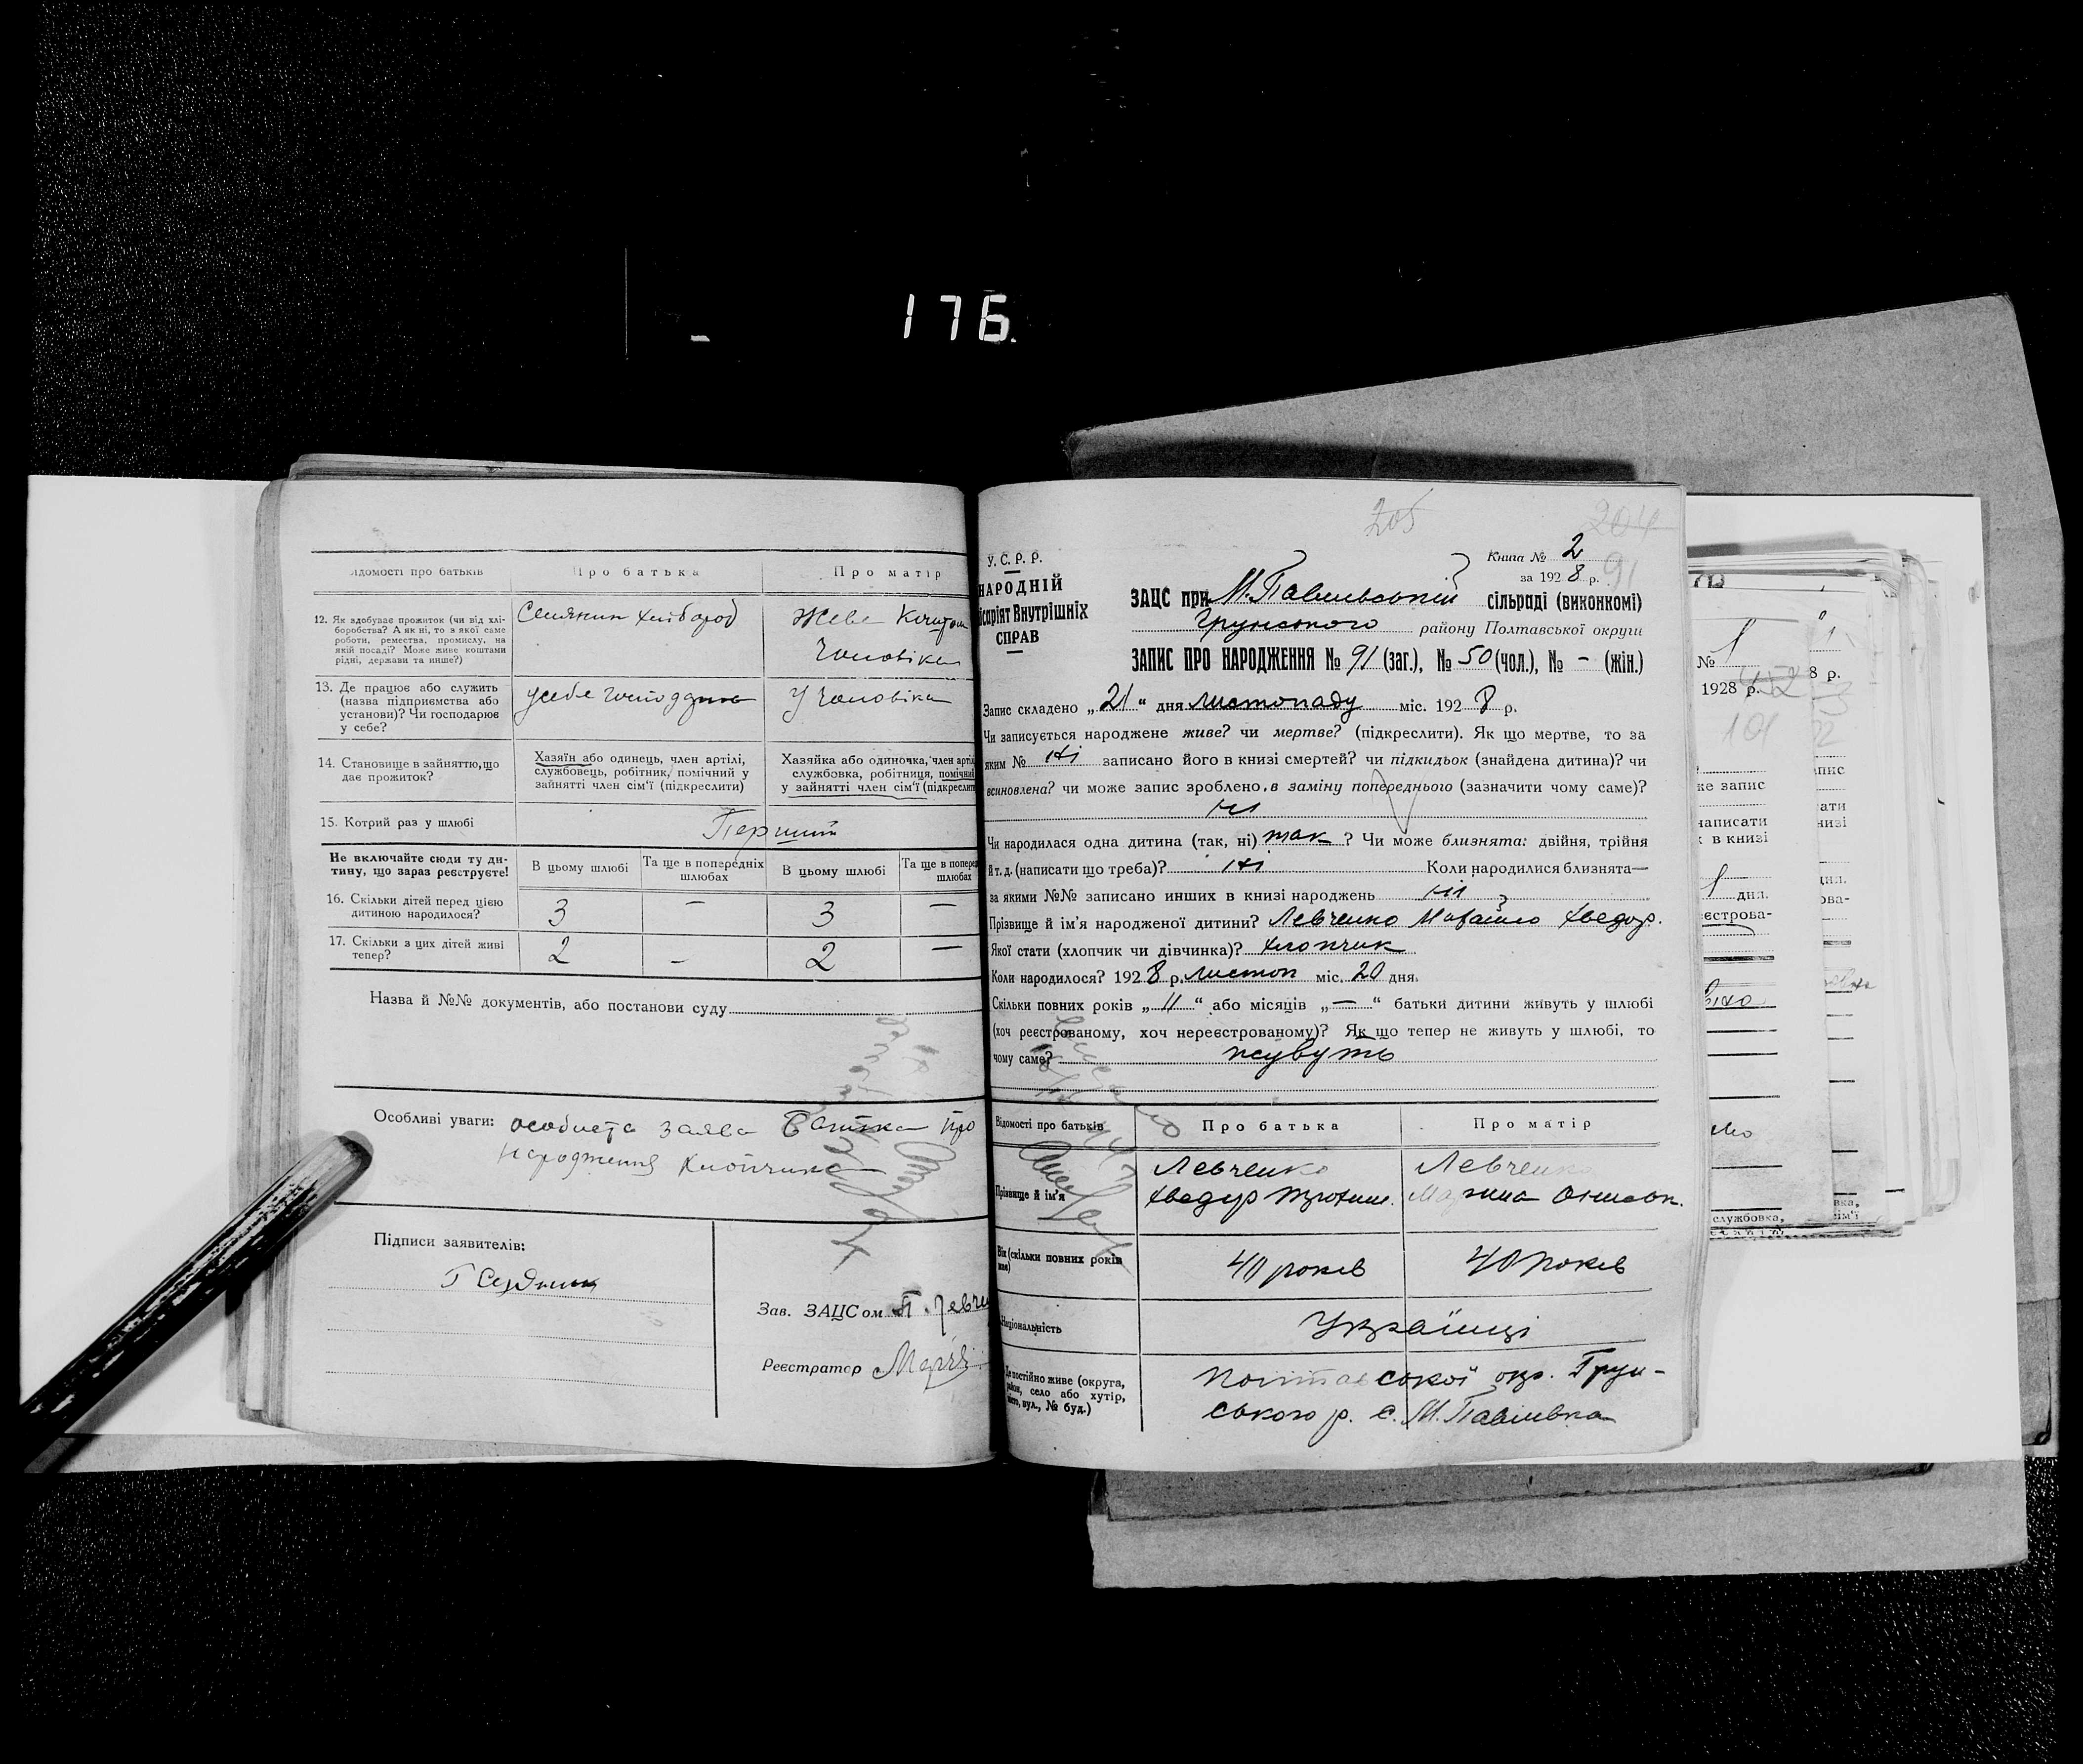 176.
Відомості про батьків
Про батька
Про матір
12. Як здобуває прожиток (чи від хлі-
боробства? А як ні, то з якої саме
роботи, ремества, промислу, на
якій посаді? Може живе коштами
рідні, держави та инше?)
Селянин хлібороб
Живе Коштом
Чоловіка
13. Де працює або служить
(назва підприємства або
установи)? Чи господарює
у себе?
У Чоловіка
14. Становище в зайняттю, що
дає прожиток?
Хазяїн або одинець, член артілі,
службовець, робітник, помічний у
зайнятті член сім'ї (підкреслити)
Хазяйка або одиночка, член артіл
службовка, робітниця, помічний
у зайнятті член сім'ї (підкреслит
15. Котрий раз у шлюбі
Перший
Не включайте сюди ту ди-
тину, що зараз реєструєте!
В цьому шлюбі
Та ще в попередніх
шлюбах
В цьому шлюбі
Та ще в попере
шлюбах
16. Скільки дітей перед цією
дитиною народилося?
3 — 3 —
17. Скільки з цих дітей живі
тепер?
2 - 2 —
Назва й №№ документів, або постанови суду
Особливі уваги: особиста заява Батька про
народження хлопчика
Підписи заявителів:
Зав. ЗАЦСом П. Левче
Реєстратор
205
204
У.С.Р.Р.
НАРОДНІЙ
ісаріят Внутрішніх
СПРАВ
Книга № 2
за 1928 р. 91
ЗАЦС при М. Павлівській сільраді (виконкомі)
Грунського району Полтавської округи
ЗАПИС ПРО НАРОДЖЕННЯ № 91 (заг.), № 50 (чол.), № - (жін.)
Запис складено „21" дня листопаду міс. 1928 р.
Чи записується народжене живе? чи мертве? (підкреслити). Як що мертве, то за
яким № ні записано його в книзі смертей? чи підкидьок (знайдена дитина)? чи
всиновлена? чи може запис зроблено в заміну попереднього (зазначити чому саме)?
ні
Чи народилася одна дитина (так, ні) так? Чи може близнята: двійня, трійня
й т. д. (написати що треба)? ні Коли народилися близнята—
за якими №№ записано инших в книзі народжень ні
Прізвище й ім'я народженої дитини? Левченко Михайло Хведор.
Якої стати (хлопчик чи дівчинка)? хлопчик
Коли народилося? 1928 р. листоп міс. 20 дня.
Скільки повних років „11" або місяців „—" батьки дитини живуть у шлюбі
(хоч реєстрованому, хоч нереєстрованому)? Як що тепер не живуть у шлюбі, то
чому саме? живуть
Відомості про батьків
Про батька
Про матір
Прізвище й ім'я
Левченко
Хведор
Левченко
Марина Ониськ.
Вік (скільки повних років
має)
40 років
40 років
Національність
Українці
Де постійно живе (округа,
район, село або хутір,
місто, вул., № буд.)
Полтавської окр. Грун-
ського р. с. М. Павлівка
№ 1
1928 р.
8 р.
101